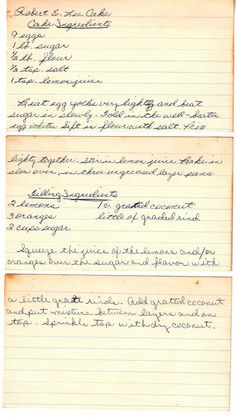 Robert E. Lee Cake
Cake Ingredients
9 eggs
1 lb. sugar
1/2 lb. flour
1/2 tsp. salt
1 tsp. lemon juice
Beat egg yolks very lightly and beat
sugar in slowly. Fold in the well-beaten
egg whites. Sift in flour with salt. Mix
lightly together. Stir in lemon juice. Bake in
slow oven, in three ungreased layer pans.
Filling Ingredients
2 lemons 1 c. grated coconut
3 oranges little of graded rind
2 cups sugar
Squeeze the juice of the lemons and/or
oranges over the sugar and flavor with
a little grate rinds. Add gratted coconut
and put mixture between layers and on
top. Sprinkle top with dry coconut.